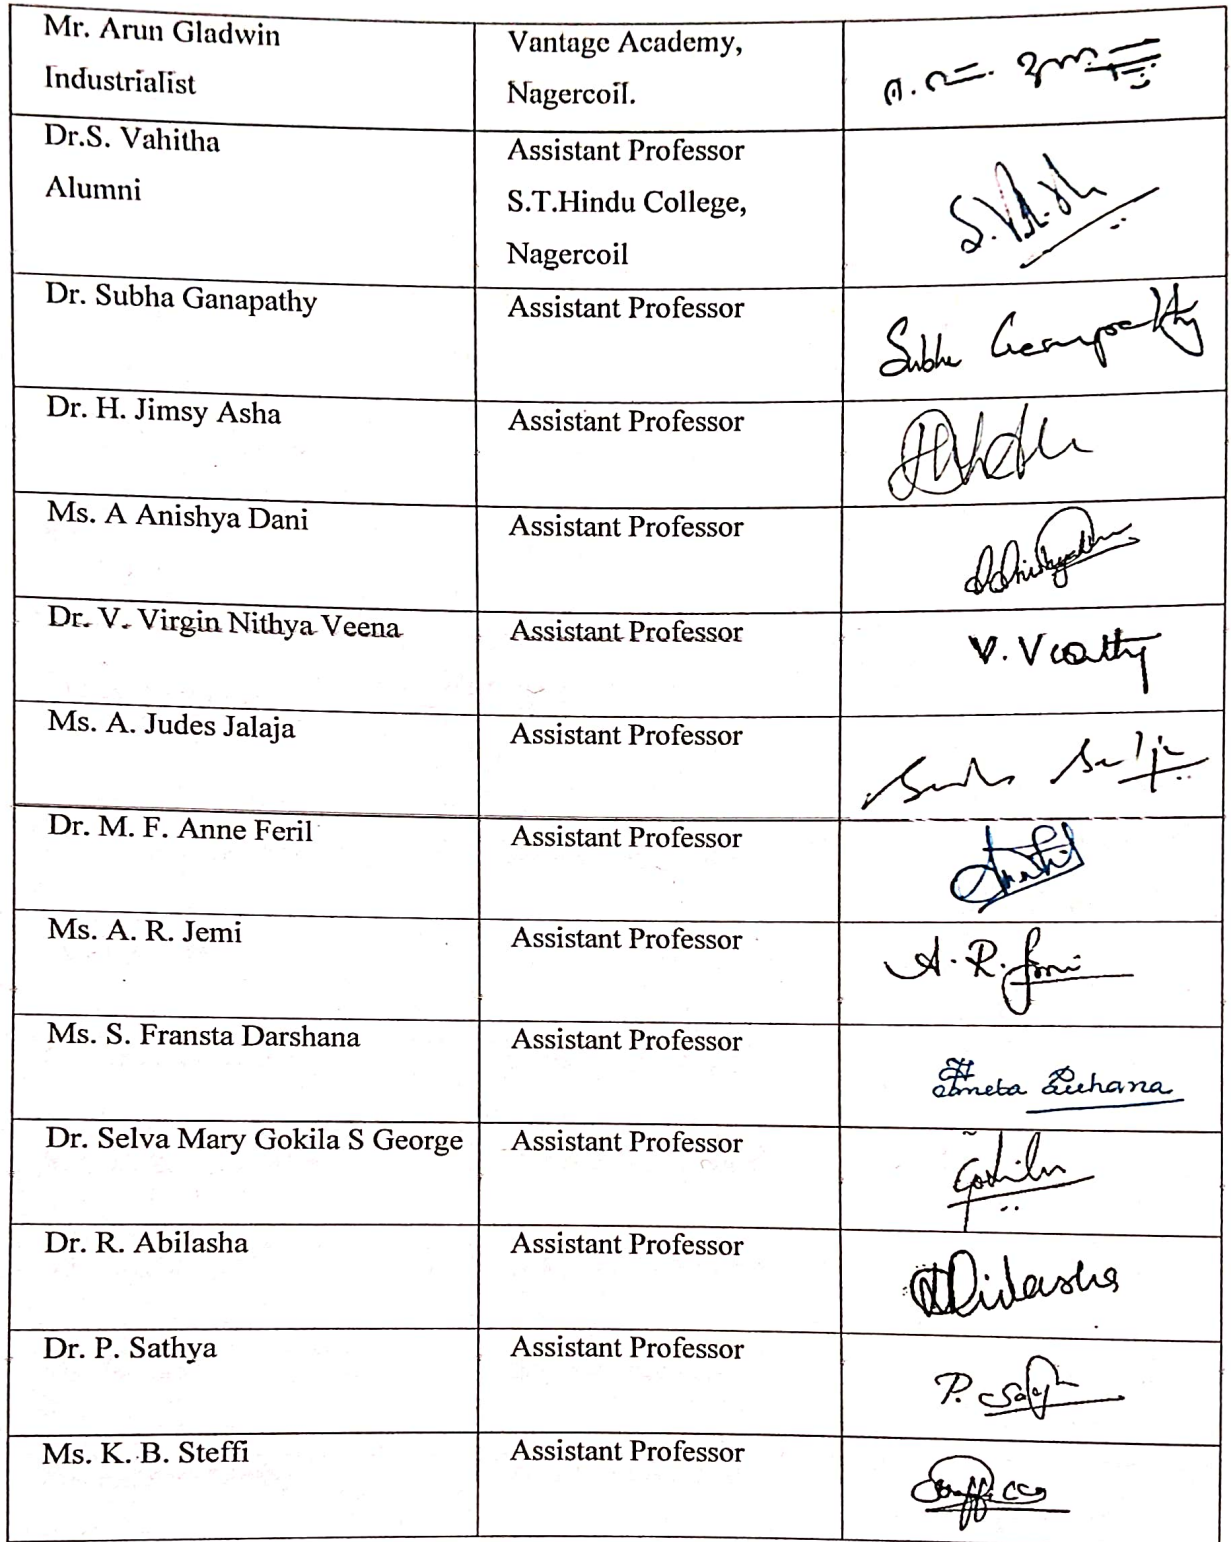 Mr. Arun Gladwin
Industrialist
Vantage Academy,
Nagercoil.
Dr.S. Vahitha
Alumni
Assistant Professor
S.T.Hindu College,
Nagercoil
Dr. Subha Ganapathy
Assistant Professor
Subha Ganapathy
Dr. H. Jimsy Asha
Assistant Professor
Ms. A Anishya Dani
Assistant Professor
Dr. V. Virgin Nithya Veena
Assistant Professor
Ms. A. Judes Jalaja
Assistant Professor
Dr. M. F. Anne Feril
Assistant Professor
Ms. A. R. Jemi
Assistant Professor
A. R. Jemi
Ms. S. Fransta Darshana
Assistant Professor
Dr. Selva Mary Gokila S George
Assistant Professor
Gokila
Dr. R. Abilasha
Assistant Professor
Abilasha
Dr. P. Sathya
Assistant Professor
Ms. K. B. Steffi
Assistant Professor